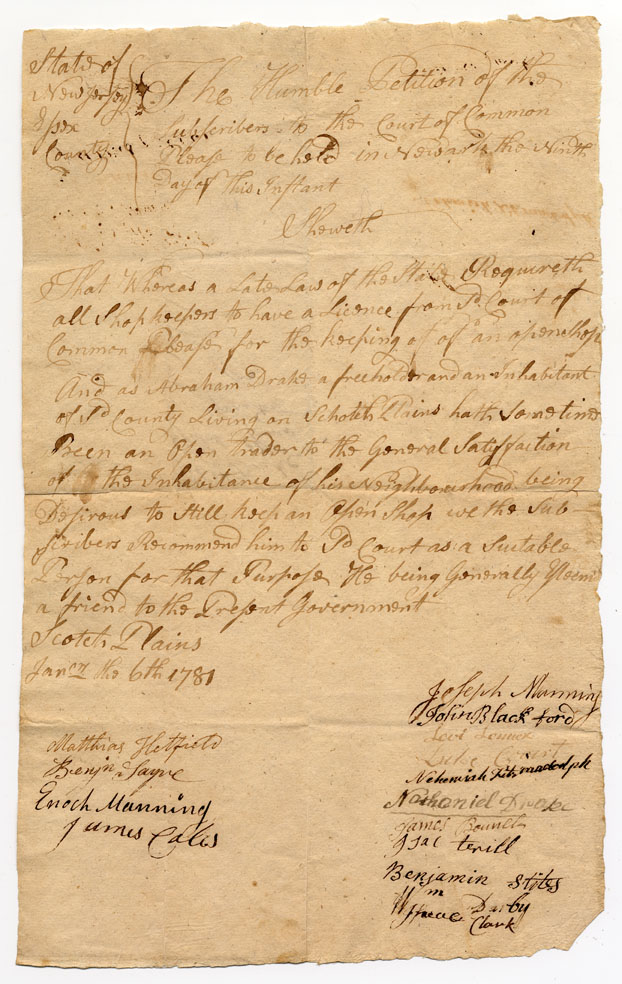 State of
New Jersey
Essex
County
The Humble Petition of the
Subscribers to the Court of Common
Please to be held in Newark the Ninth
Day of This Instant
Sheweth
That Whereas a Late Law of the State Requireth
all Shopkeepers to have a Licence from Sd Court of
Common Please for the keeping of of an open Shop
And as Abraham Drake a freeholder and an Inhabitant
of Sd County Living on Schotch Plains hath Sometime
Been an Open trader to the General Satisfaction
of the Inhabitance of his Neighbourhood being
Desirous to Still keep an Open Shop we the Sub-
scribers Recommend him to Sd Court as a Suitable
Person for that Purpose He being Generally Esteem
a friend to the Present Government
Scotch Plains
Jany the 6th 1781
Joseph Manning
John Black ford
Levi
Luke
Nehemiah fitz randolph
Nathaniel Drake
James
Isac terill
Benjamin Stites
Wm Darby
Clark
Matthias Hetfield
Benjn Sayre
Enoch Manning
James Coles